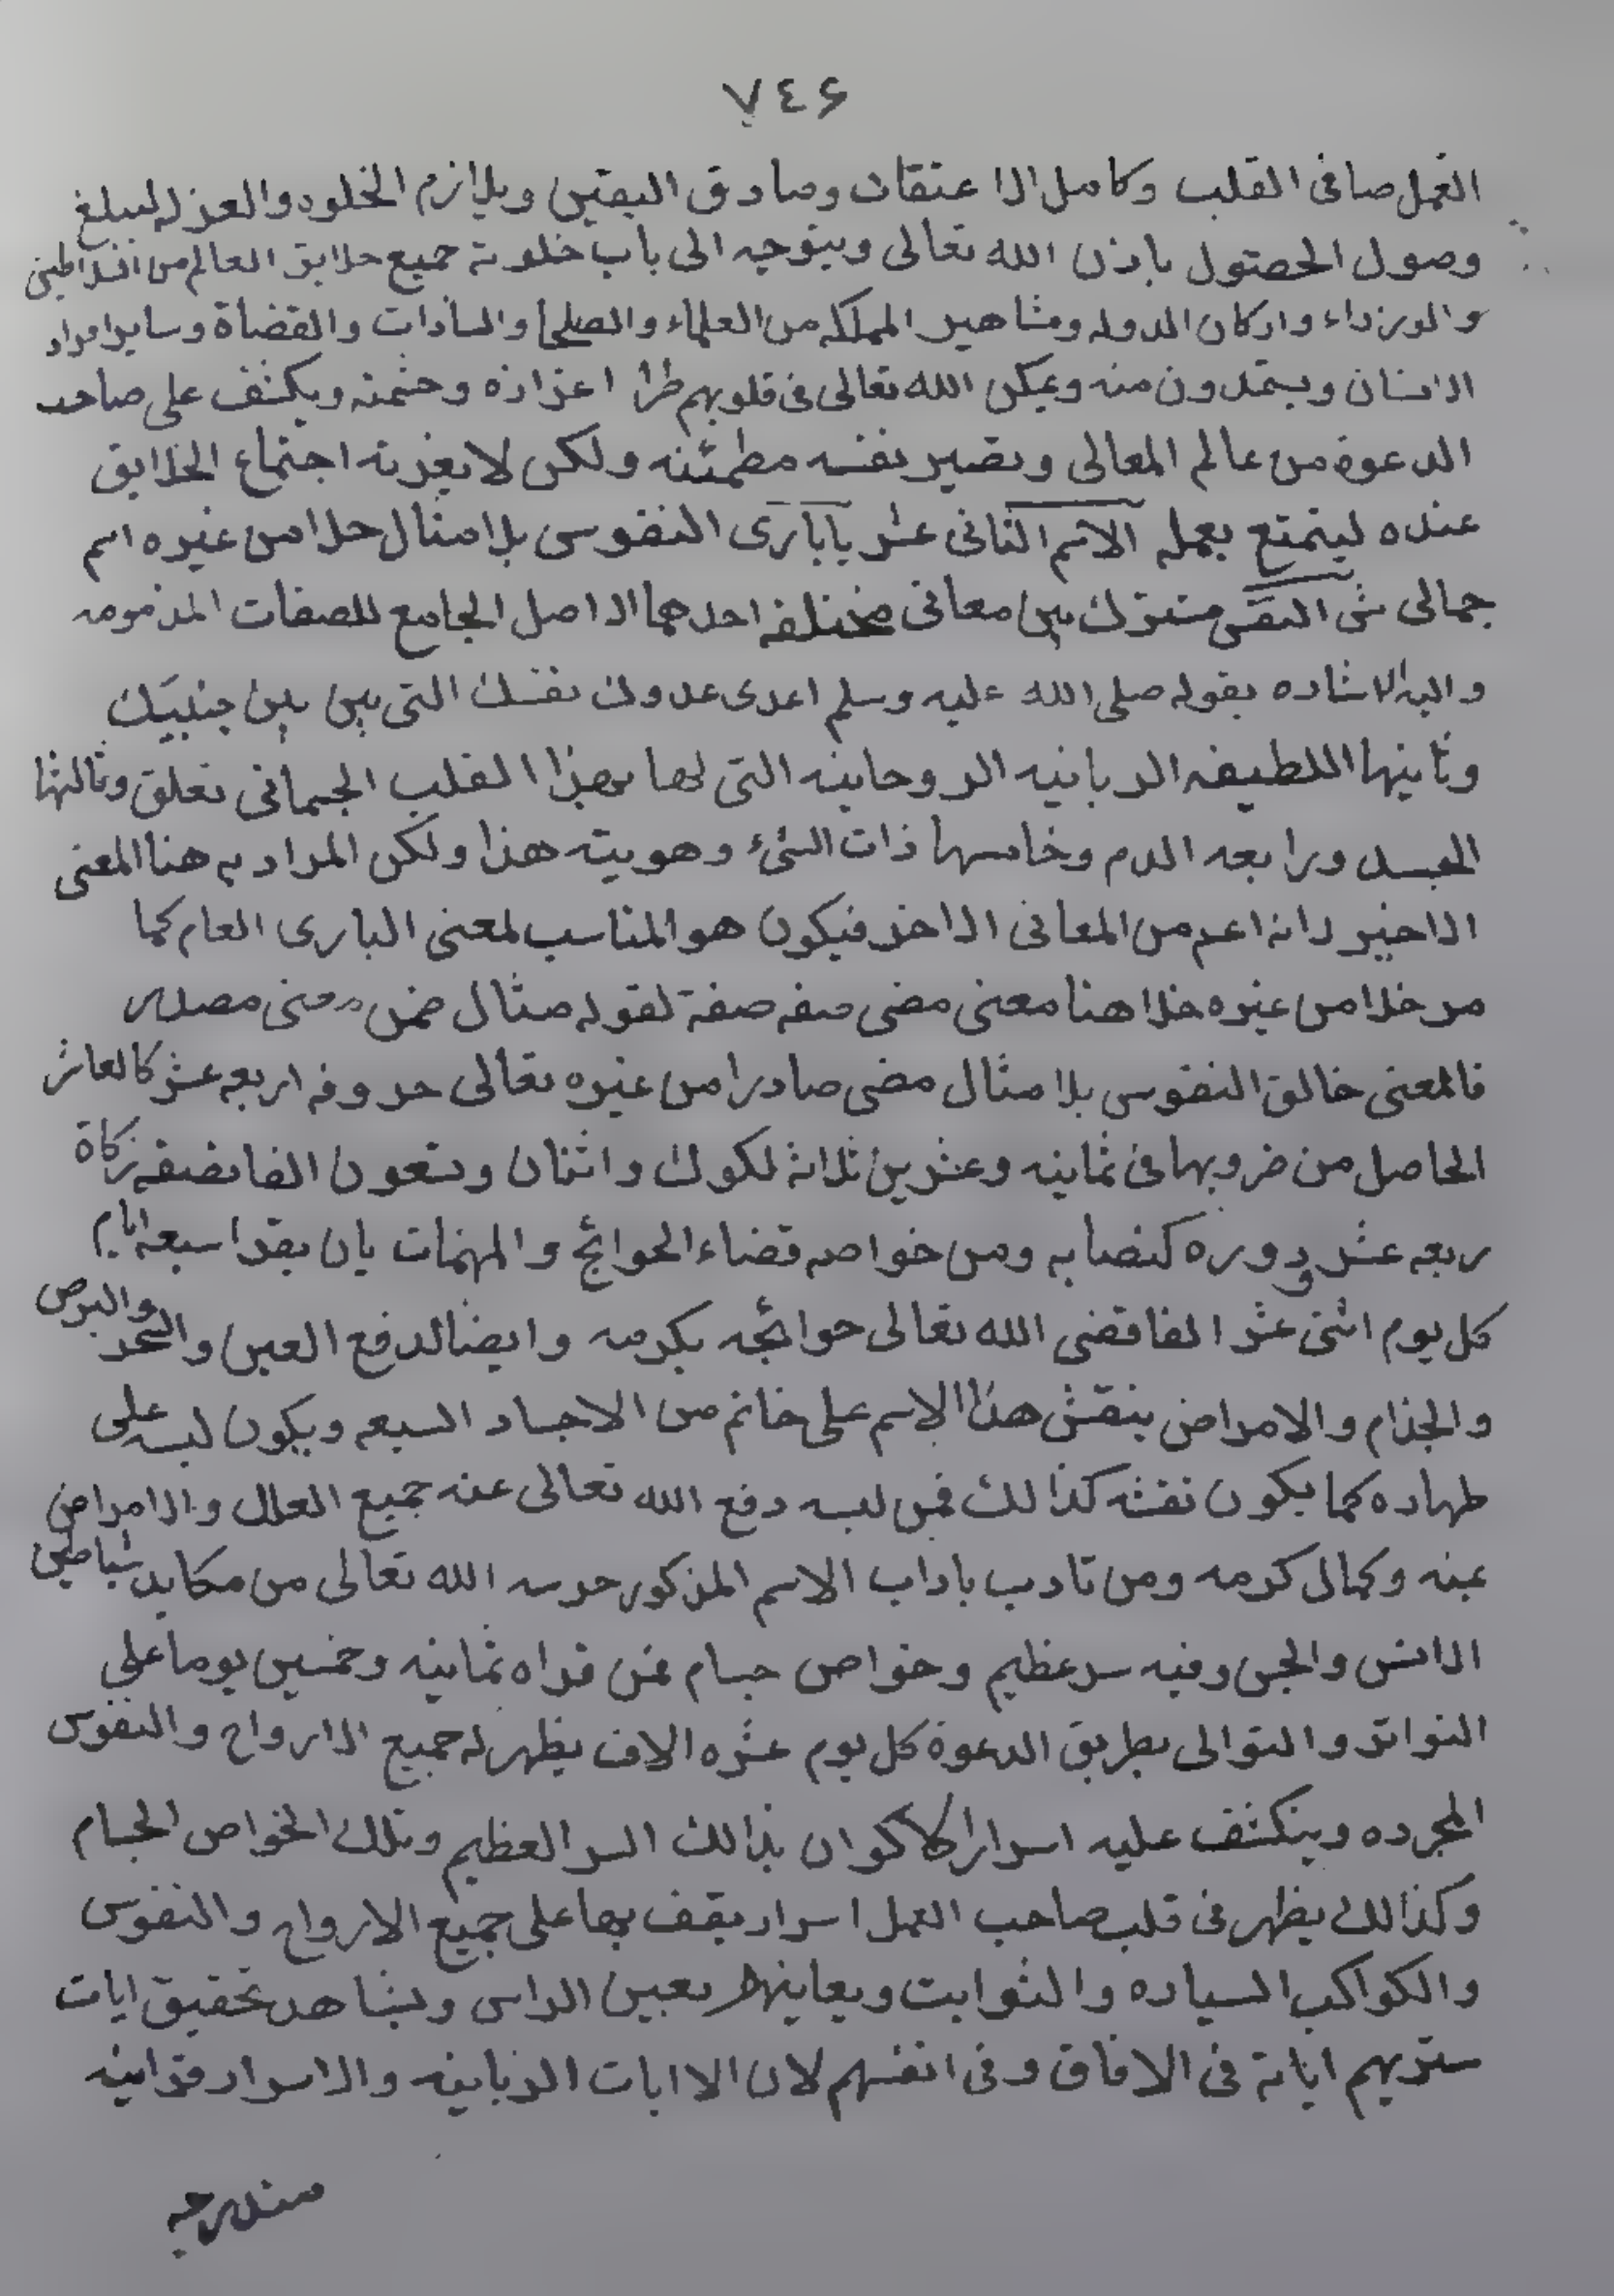 ٧٤۶
العمل صافى القلب وكامل الاا عتقاد وصادق اليقين ويلازم الخلوه والعزله ليبلغ
وصول الحصول باذن الله تعالى ويتوجه الى باب خلوته جميع خلايق العالم من
والوزراء واركان الدوله ومشاهير المملكه من العلماء والصلحا والسادات والقضاة وساير افراد
الانسان ويستمدون منه ويمكن الله تعالى فى قلوبهم طرا اعزازه وحشمته ويكشف على صاحب
الدعوة من عالم المعالى وتصير نفسه مطمئنه ولكن لا يغرنه اجتماع الخلايق
عنده ليتمتع بعمله الاسم الثانى عشر يابارى النفوس بلا مثال خلا من غيره اسم
جمالى شى النفس مشترك بين معانى مختلفه احدهما الاصل الجامع للصفات المذمومه
واليه الاشاره بقوله صلى الله عليه وسلم اعدى عدوك نفسك التى بين بين جنبيك
وثانيها اللطيفه الربانيه الروحانيه التى لها بهذا القلب الجسمانى تعلق وثالثها
الجسد ورابعه الدم وخامسها ذات الشىء وهويته هذا ولكن المراد به هنا المعنى
الاخير لانه اعم من المعانى الاخر فيكون هو المناسب لمعنى البارى العام كما
مر خلا من غيره خلا هنا معنى مضى صفه صفة لقوله مثال ضمن معنى مصدر
فالمعنى خالق النفوس بلا مثال مضى صادرا من غيره تعالى حروفه اربعه عشر كالعاشر
الحاصل من ضروبها فى ثمانيه وعشرين ثلاثة لكوك واثنان وتسعون الفا نصفه زكاة
ربعه عشر ودوره كنصابه ومن خواصه قضاء الحوائج والمهمات بان يقرا سبعه ايام
كل يوم اثنى عشر الفا قضى الله تعالى حوائجه بكرمه وايضا لدفع العين والسحر والبرص
والجذام والامراض ينقش هذا الاسم على خاتم من الاجساد السبعه ويكون لبسه على
طهاره كما يكون نقشه كذالك فمن لبسه دفع الله تعالى عنه جميع العلل والامراض
بمنه وكمال كرمه ومن تادب باداب الاسم المذكور حرسه الله تعالى من مكايد شياطين
الانس والجن وفيه سر عظيم وخواص جسام فمن قراه ثمانيه وخمسين يوما على
التواتر والتوالى بطريق الدعوة كل يوم عشره الاف يظهر له جميع الارواح والنفوس
المجرده وينكشف عليه اسرار الاكوان بذالك السر العظيم وتلك الخواص الجسام
وكذالك يظهر فى قلب صاحب العمل اسرار يقف بها على جميع الارواح والنفوس
والكواكب السياره والثوابت ويعاينها بعين الراس ويشاهد تحقيق ايات
سنريهم اياتة فى الافاق وفى انفسهم لان الاايات الربانيه والاسرار قرانيه
مندرجه